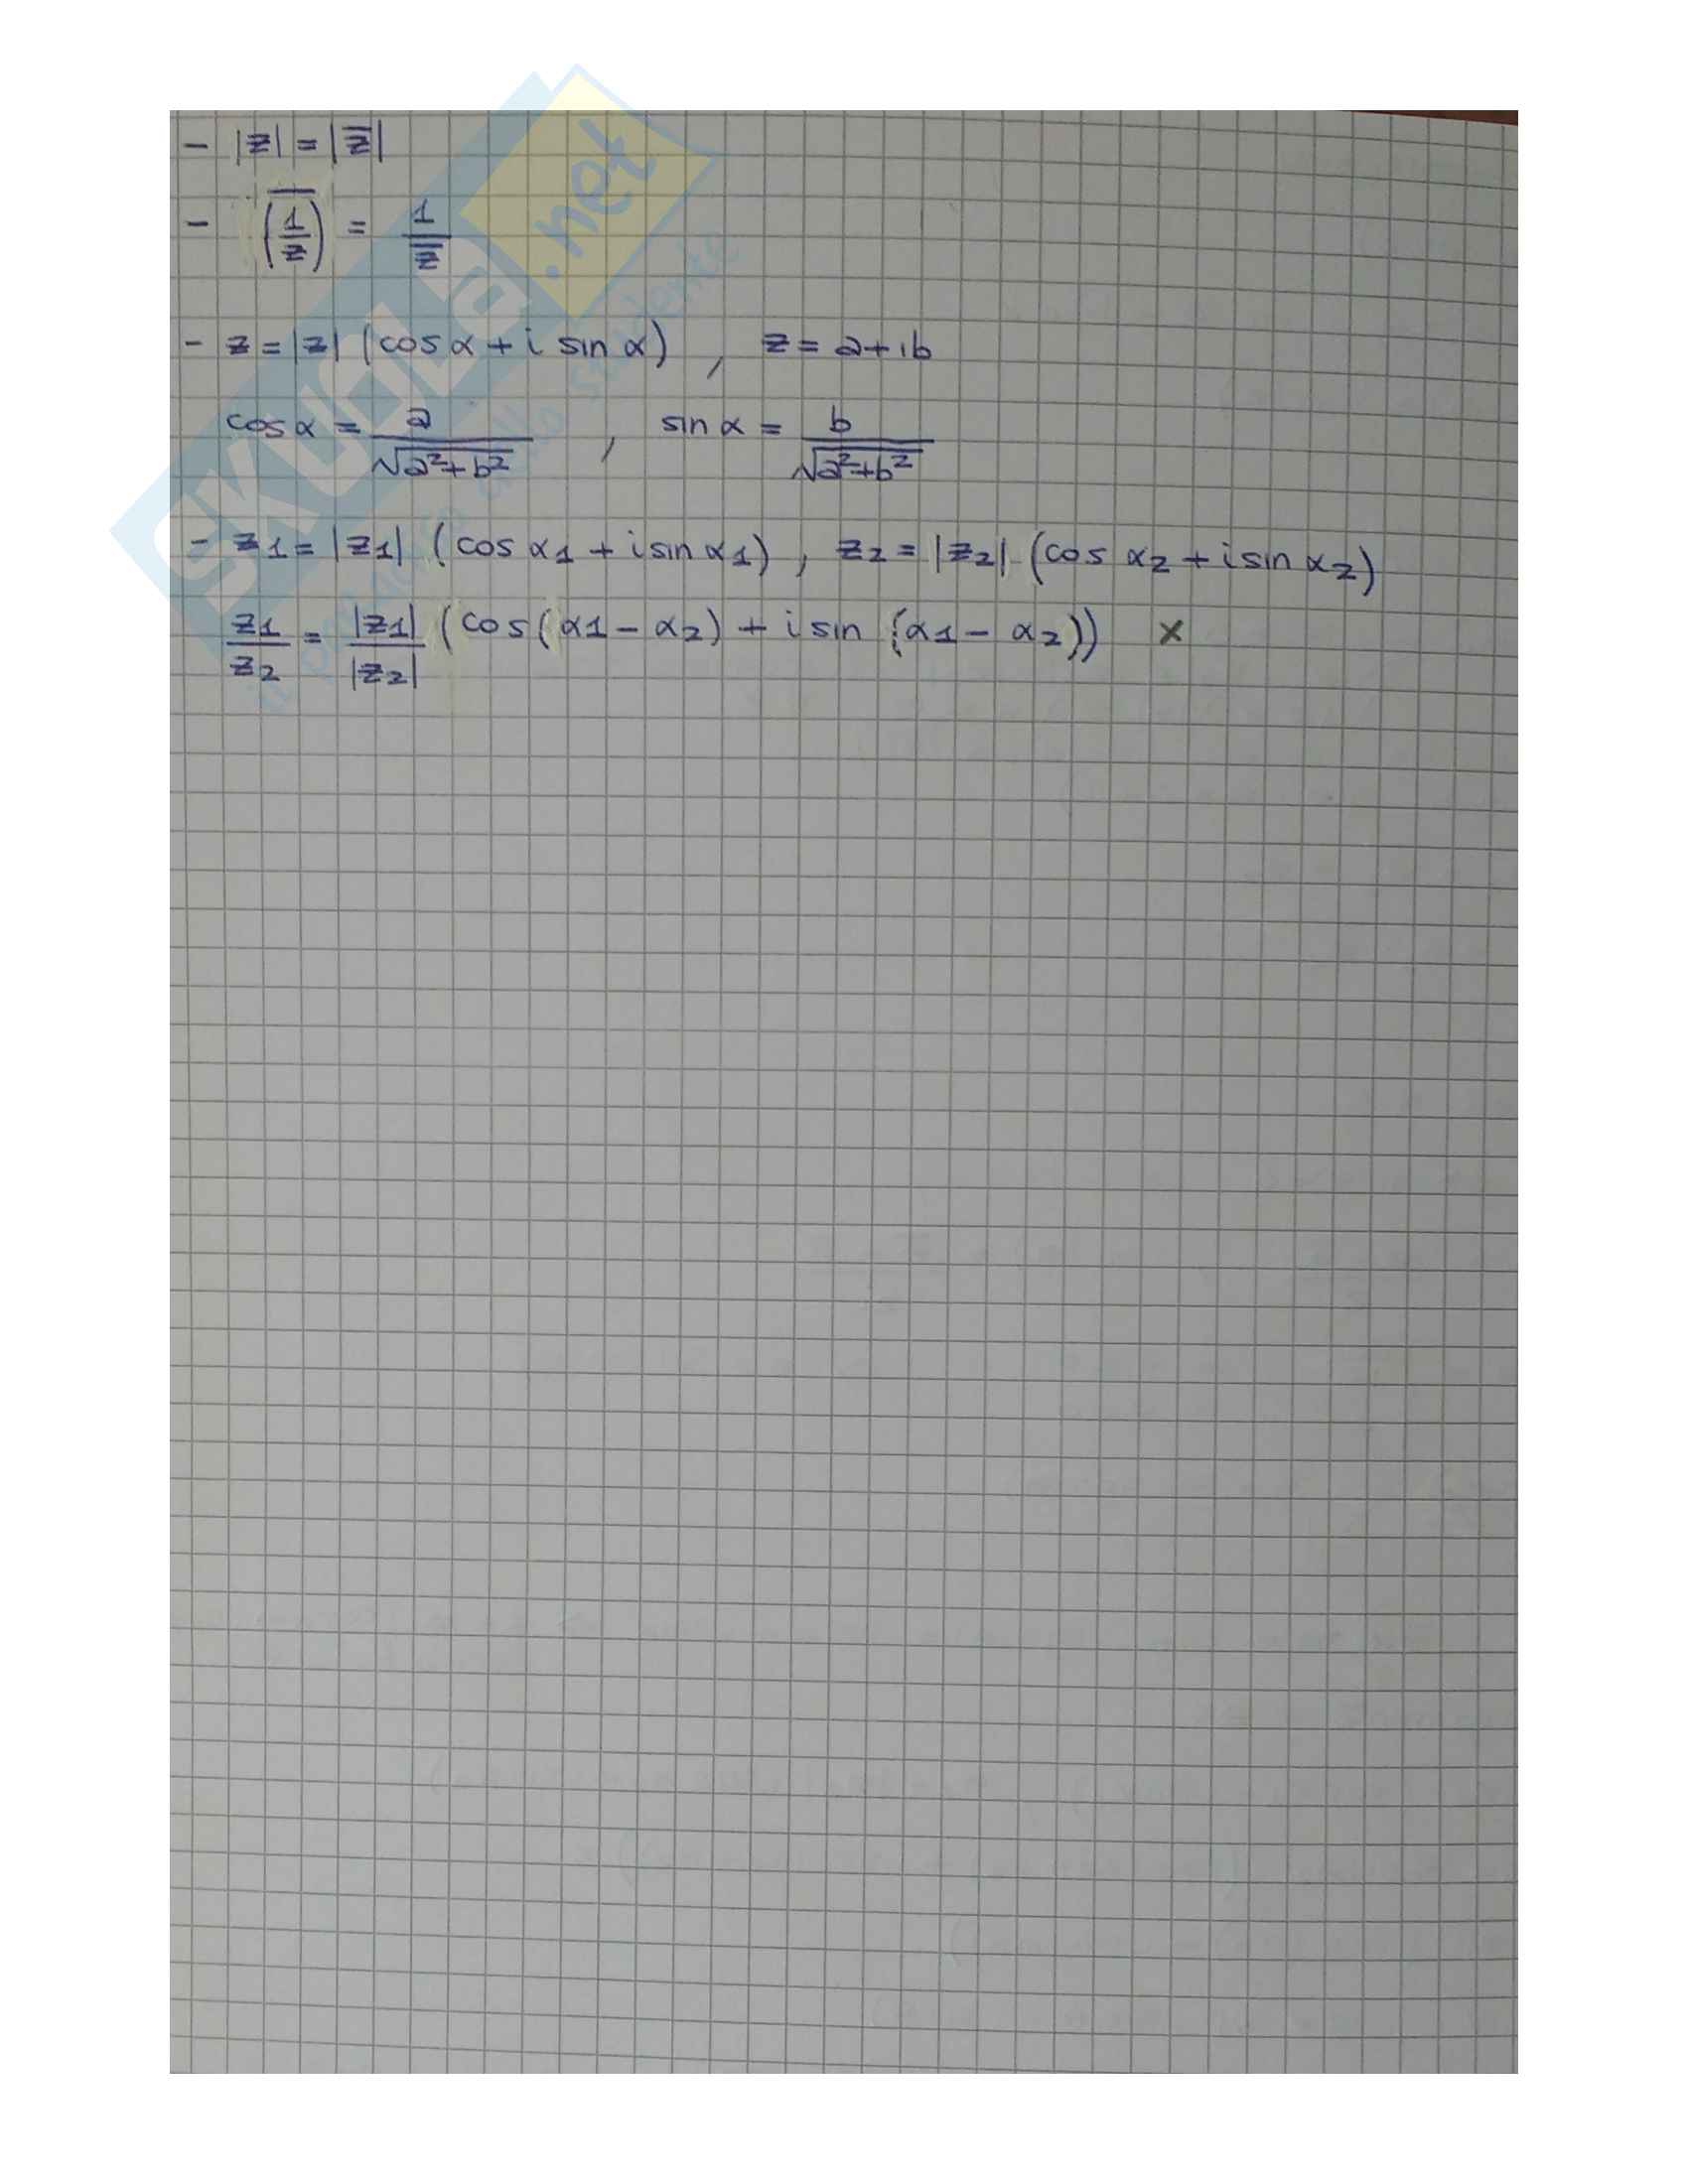 - |z| = |z̅|
- \overline{(1/z)} = 1/z̅
- z = |z| (cos α + i sin α) , z = a + ib
cos α = a/√(a²+b²) , sin α = b/√(a²+b²)
- z1 = |z1| (cos α1 + i sin α1) , z2 = |z2| (cos α2 + i sin α2)
z1/z2 = |z1|/|z2| (cos(α1 - α2) + i sin (α1 - α2)) x
SKUOLA.net